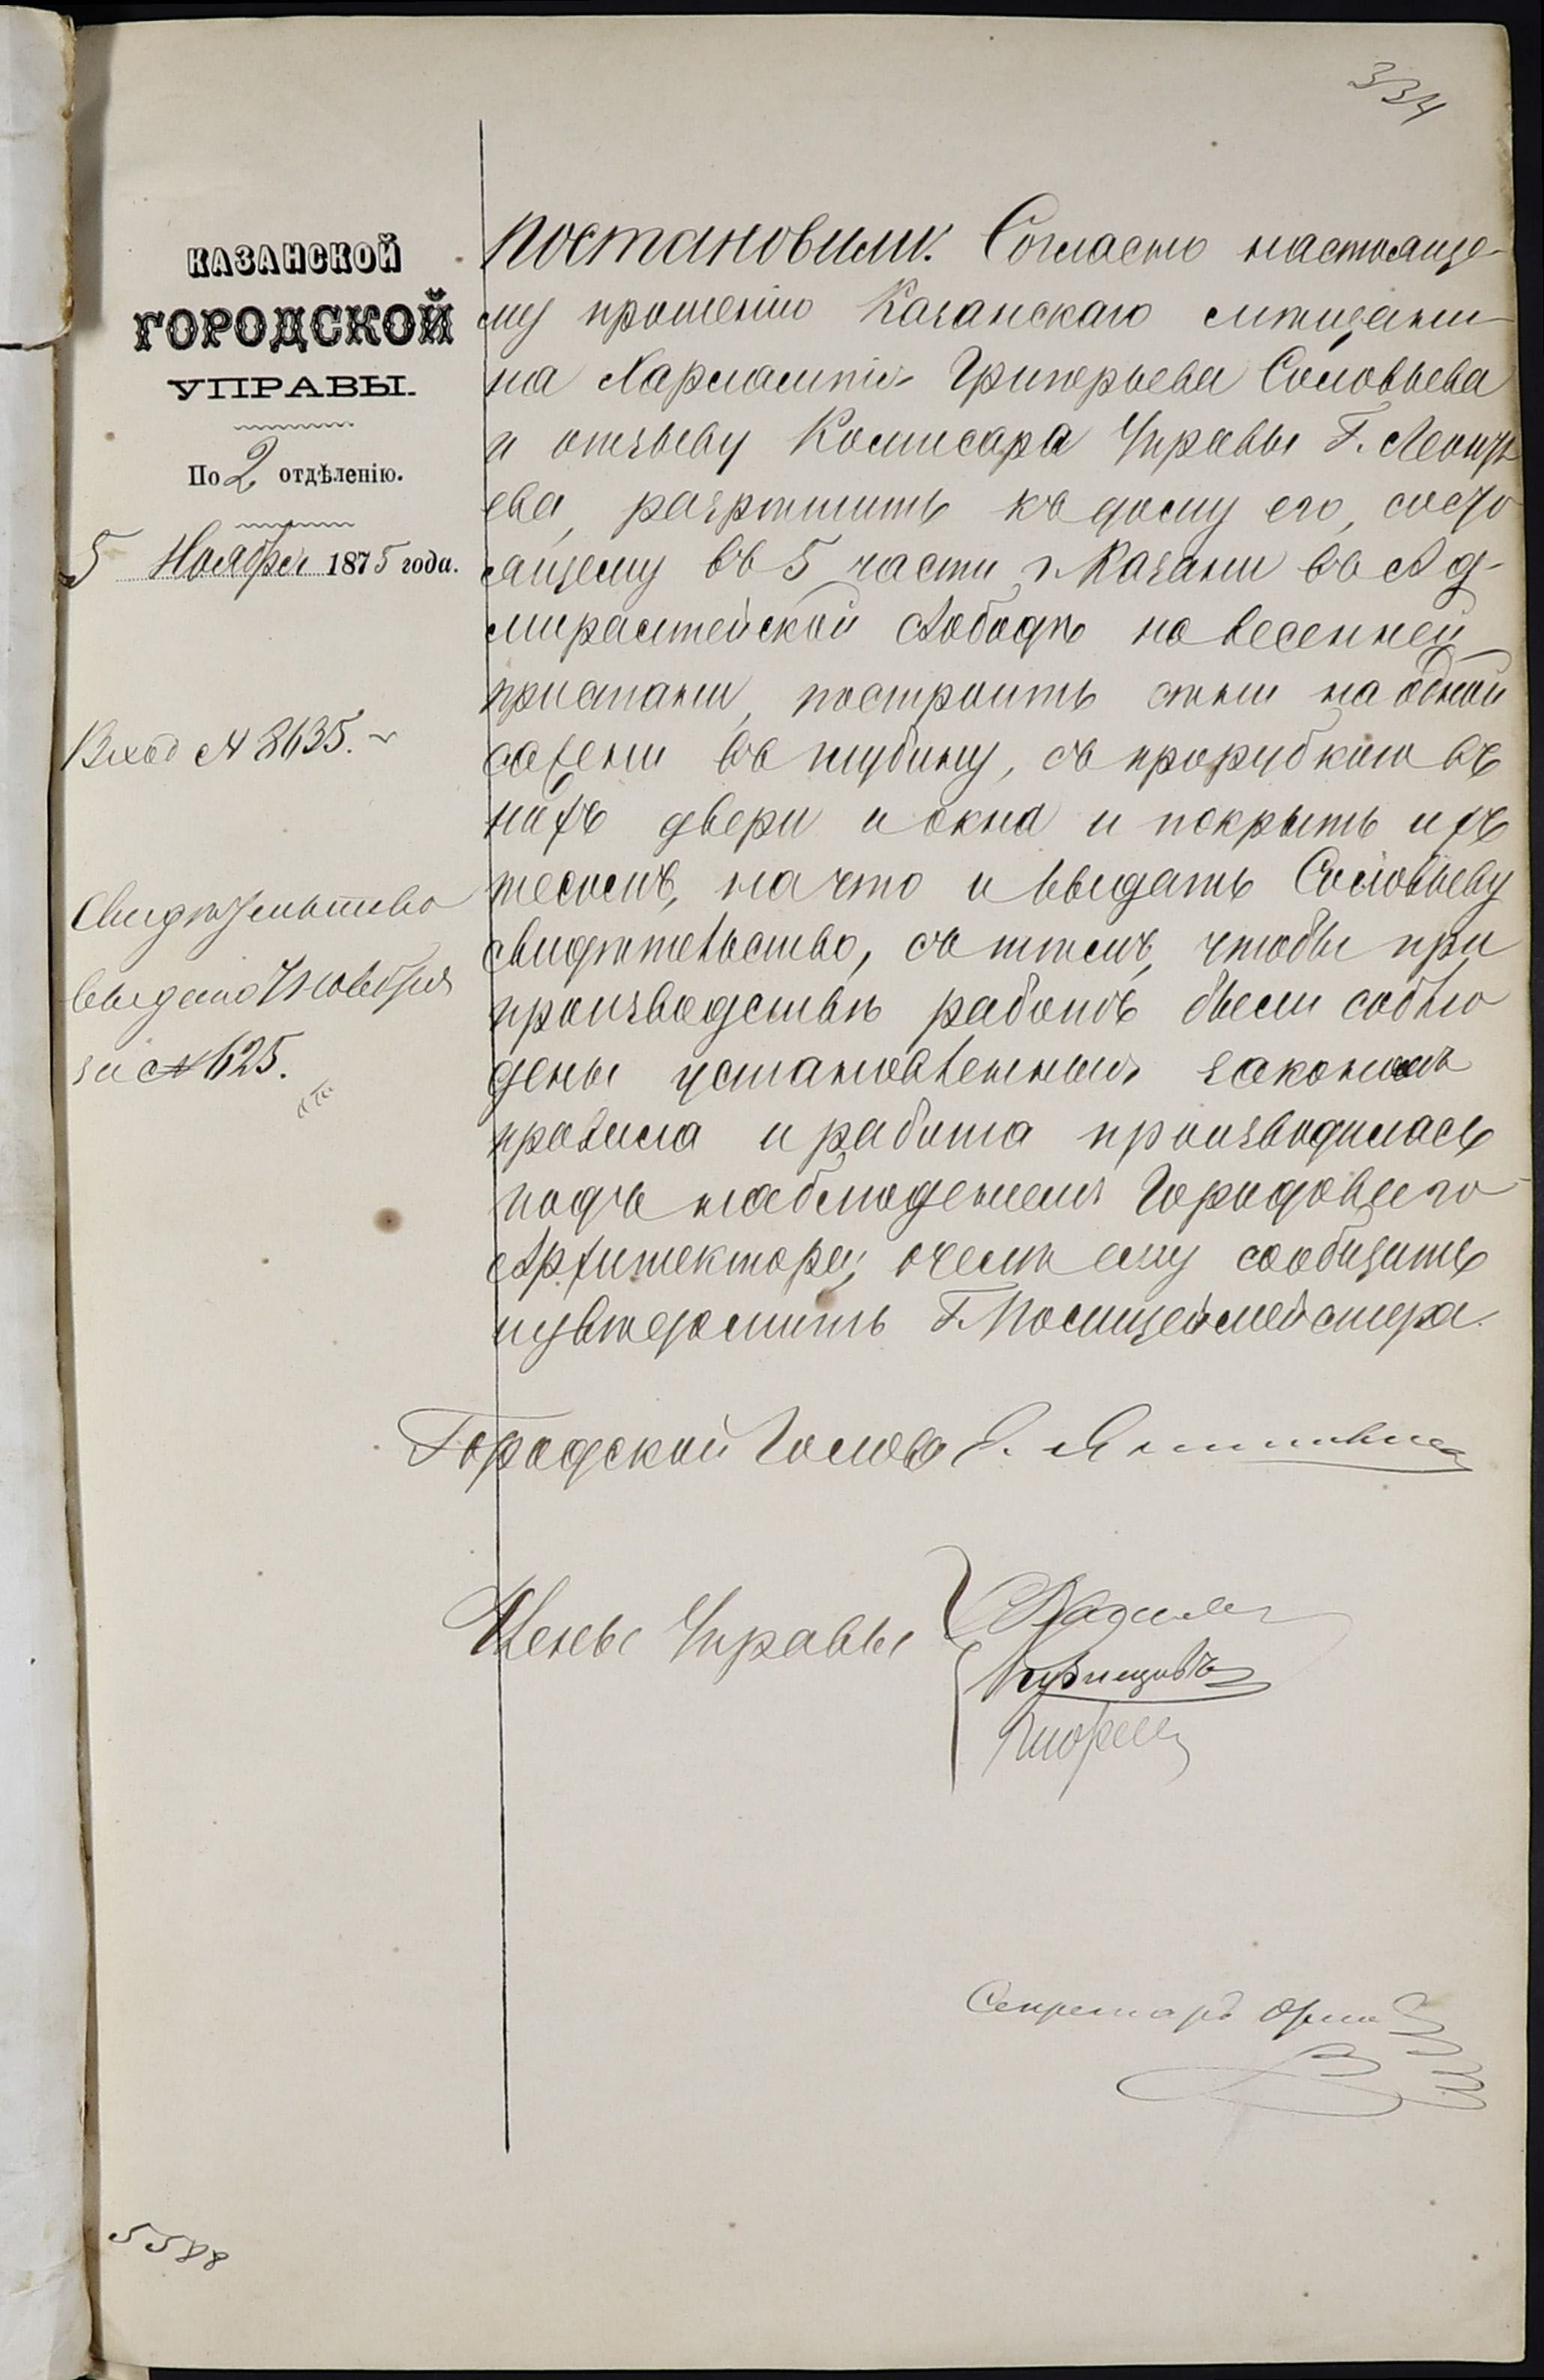 334
КАЗАНСКОЙ
ГОРОДСКОЙ
УПРАВЫ.
По 2 отдѣленію.
5 Ноября 1875 года.
Вход № 8635.
Свидѣтельство
выдано 7 Ноября
за № 625.
постановили: Согласно настояще-
му прошенію Казанскаго мѣщани-
на Харлампія Григорьева Соловьева
и отзыву Комисара Управы Г. Леонть
ева, разрѣшить къ дому его, состо
ящему въ 5 части г. Казани въ Ад-
миралтейской слободѣ на весенней
пристани, построить сѣни на одной
сажени въ глубину, съ прорубкою въ
нихъ двери и окна и покрыть ихъ
тесомъ, на что и выдать Соловьеву
свидѣтельство, съ тѣмъ, чтобы при
производствѣ работъ были соблю
дены установленныя закономъ
правила и работа производилась
подъ наблюденіемъ Городоваго
Архитектора; о чемъ ему сообщить
и увѣдомить Г. Полицеймейстера.
Городской Голова Э. Янишевскій
Члены Управы
Кузнецовъ
Секретарь
5588